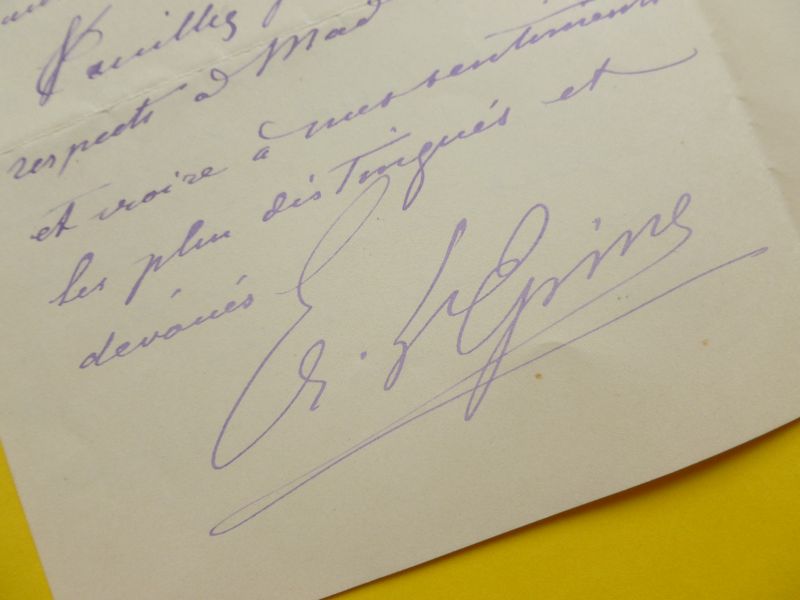 Veuillez
respects à Mad
et croire à mes sentiments
les plus distingués et
dévoués